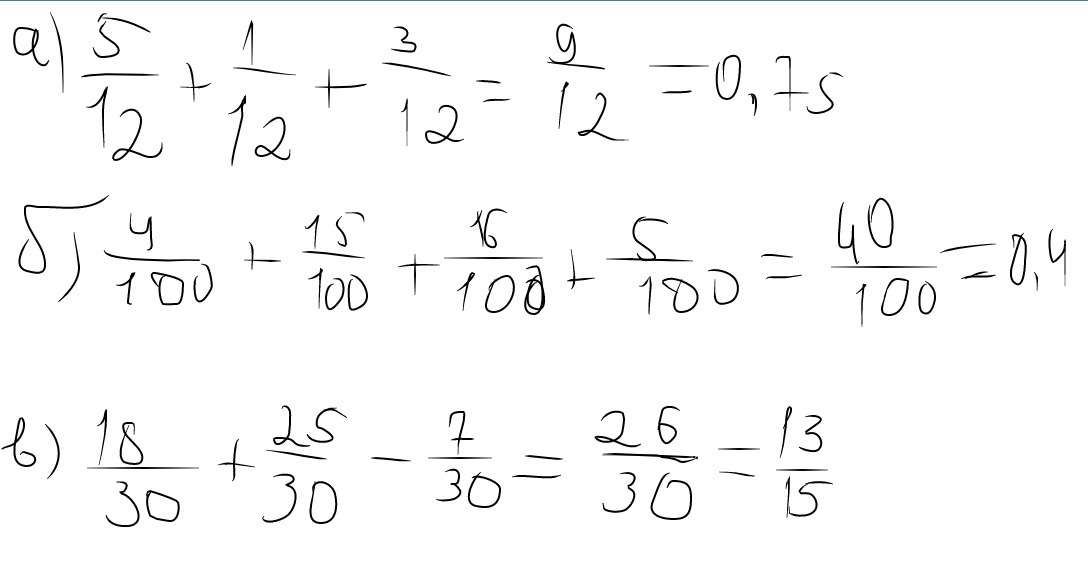 а) 5/12 + 1/12 + 3/12 = 9/12 = 0,75
б) 4/100 + 15/100 + 16/100 + 5/100 = 40/100 = 0,4
в) 18/30 + 25/30 - 7/30 = 26/30 = 13/15